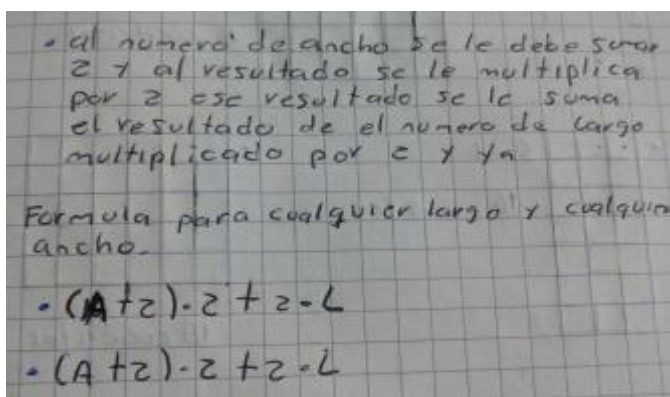 • al numero de ancho se le debe sumar
2 y al resultado se le multiplica
por 2 ese resultado se le suma
el resultado de el numero de largo
multiplicado por 2 y ya
Formula para cualquier largo y cualquier
ancho.
• (A+2)·2+2·L
• (A+2)·2+2·L